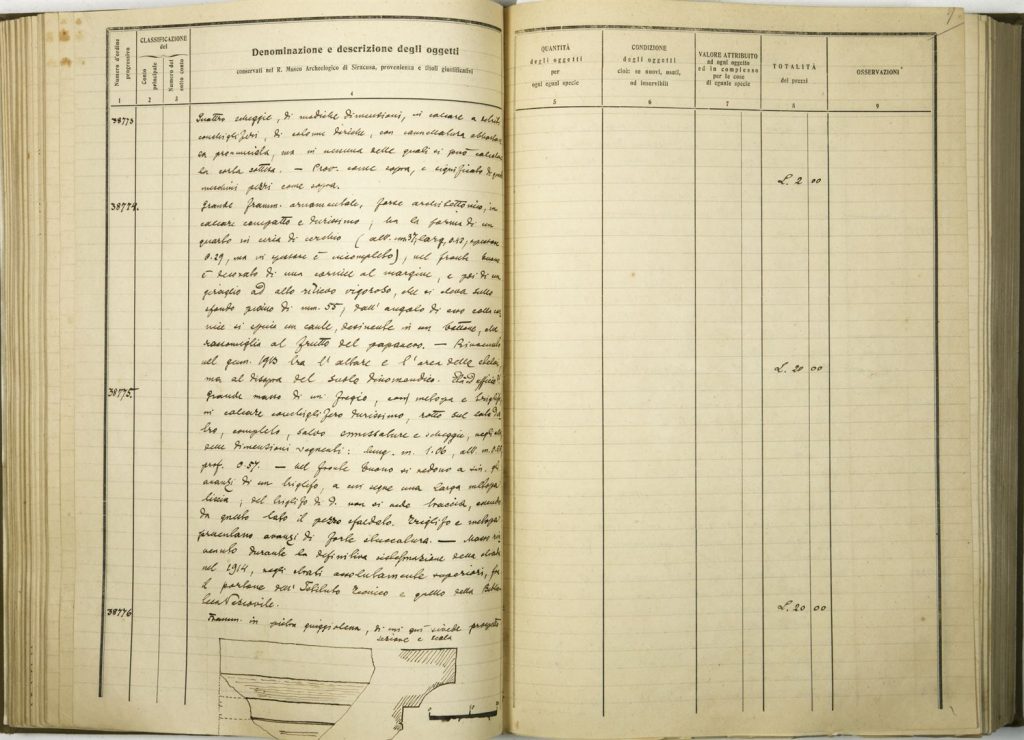 Numero d'ordine progressivo
CLASSIFICAZIONE del
Conto principale
Numero del sotto conto
Denominazione e descrizione degli oggetti
conservati nel R. Museo Archeologico di Siracusa, provenienza e titoli giustificativi
1 2 3 4
38773 Quattro scheggie, di modiche dimensioni, in calcare a
conchigliferi, di colonne doriche, con cannellatura
pronunciata, ma in nessuna delle quali si può
la corda sottesa. — Prov. come sopra, e significato di
meschini pezzi come sopra.
38774. Grande framm. ornamentale, forse architettonico, in
calcare compatto e durissimo; ha la forma di un
quarto in circa di cerchio (alt. mm. 37, larg. 0.42, spessore
0.29, ma in spessore è incompleto), nel fronte buono
è decorato di una cornice al margine, e poi di un
ad alto rilievo vigoroso, che si eleva sullo
sfondo di mm. 55; dall' angolo di esso colla
si un caule, desinente in un bottone, che
rassomiglia al frutto del papavero. — Rinvenuto
nel genn. 1913 tra l' altare e l' area delle
ma al disopra del suolo dinomenidico.
38775. Grande masso di un fregio, con metopa e triglifo
in calcare conchiglifero durissimo, rotto sul lato
tro, completo, salvo smussature e scheggie, negli
delle dimensioni seguenti: lung. m. 1.06, alt. m.
prof. 0.57. — Nel fronte buono si vedono a sin. gli
avanzi di un triglifo, a cui segue una larga metopa
liscia; del triglifo di d. non si vede traccia, essendo
da questo lato il pezzo sfaldato. Triglifo e metopa
presentano avanzi di forte stuccatura. — Masso rin
venuto durante la definitiva sistemazione della strada
nel 1914, negli strati assolutamente superiori, fra
il portone dell' Istituto Tecnico e quello della Biblio
teca Vescovile.
38776 Framm. in pietra giuggiolena, di cui qui si vede prospetto
sezione e scala
QUANTITÀ
degli oggetti
per
ogni egual specie
CONDIZIONE
degli oggetti
cioè: se nuovi, usati,
od inservibili
VALORE ATTRIBUITO
ad ogni oggetto
od in complesso
per le cose
di eguale specie
TOTALITÀ
dei prezzi
OSSERVAZIONI
5 6 7 8 9
L. 2 00
L. 20 00
L. 20 00